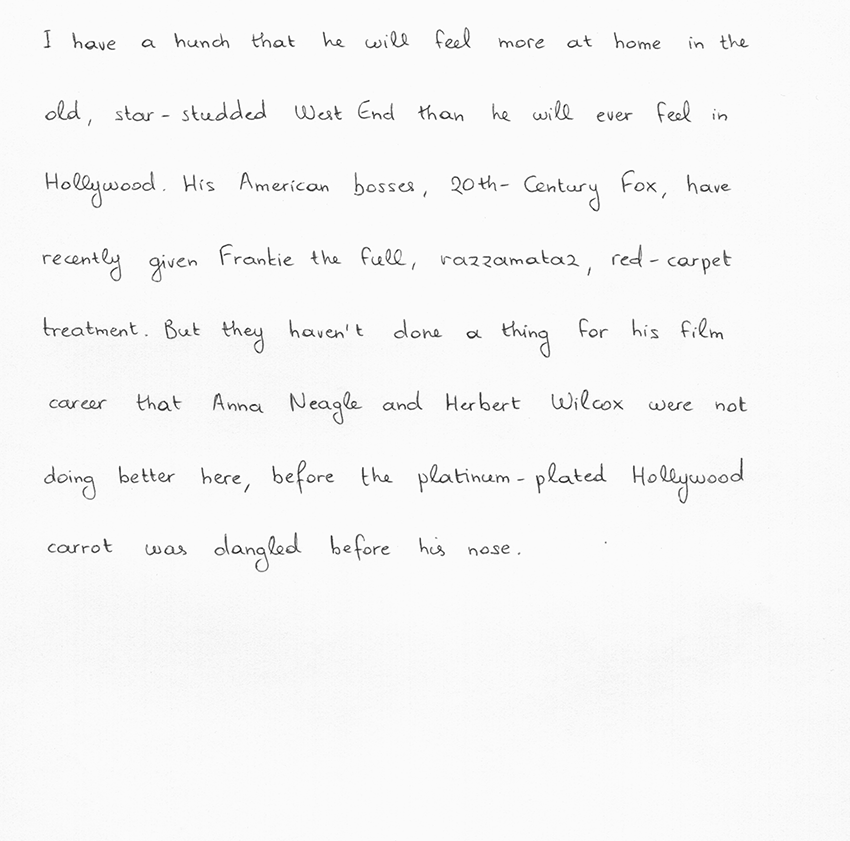 I have a hunch that he will feel more at home in the
old, star-studded West End than he will ever feel in
Hollywood. His American bosses, 20th-Century Fox, have
recently given Frankie the full, razzamataz, red-carpet
treatment. But they haven't done a thing for his film
career that Anna Neagle and Herbert Wilcox were not
doing better here, before the platinum-plated Hollywood
carrot was dangled before his nose.